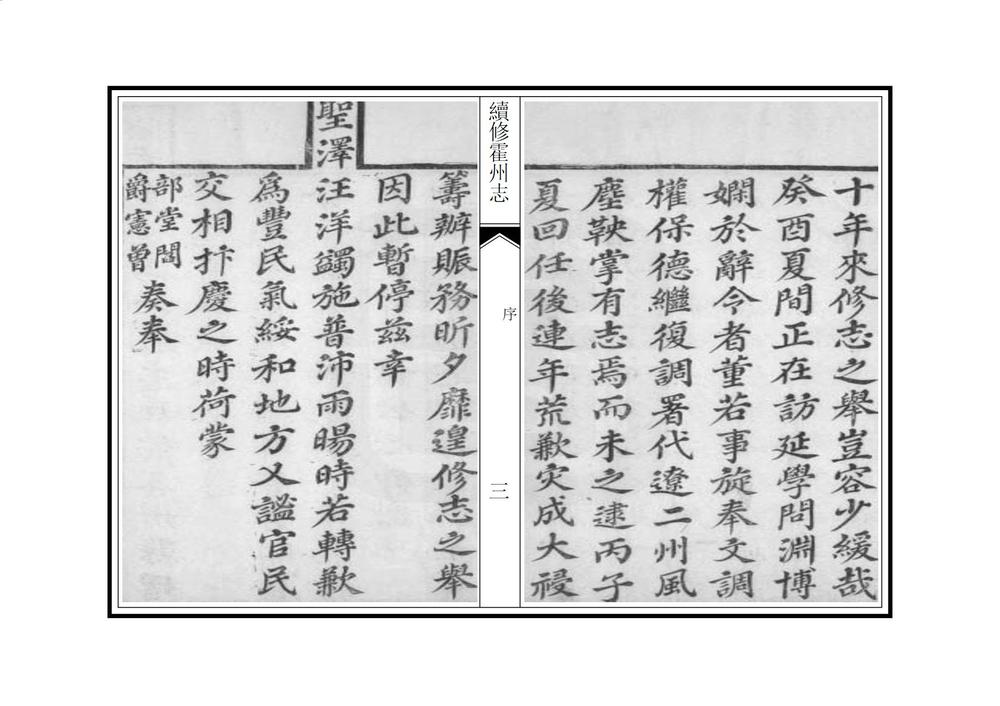 十年來修志之舉豈容少緩哉
癸酉夏間正在訪延學問淵博
嫻於辭令者董若事旋奉文調
權保德繼復調署代遼二州風
塵鞅掌有志焉而未之逮丙子
夏回任後連年荒歉灾成大祲
續修霍州志
序
三
籌辦賑務昕夕靡遑修志之舉
因此暫停茲幸
聖澤
汪洋蠲施普沛雨暘時若轉歉
為豐民氣綏和地方乂謐官民
交相抃慶之時荷蒙
部堂閻
爵憲曾
奏奉